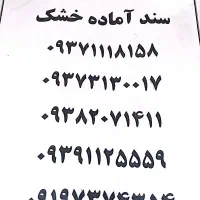 سند آماده خشک
۰۹۳۷۱۱۱۸۱۵۸
۰۹۳۷۳۱۳۰۰۱۷
۰۹۳۸۲۰۷۱۴۱۱
۰۹۳۹۱۱۲۵۵۵۹
۰۹۱۹۷۳۷۴۳۵۴